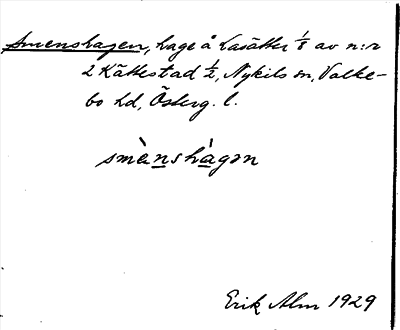 Smenshagen, hage å Lasätter 1/8 av n:r
2 Kättestad 1/2, Nykils sn, Valke-
bo hd, Österg. l.
smènshàgən
Erik Alm 1929